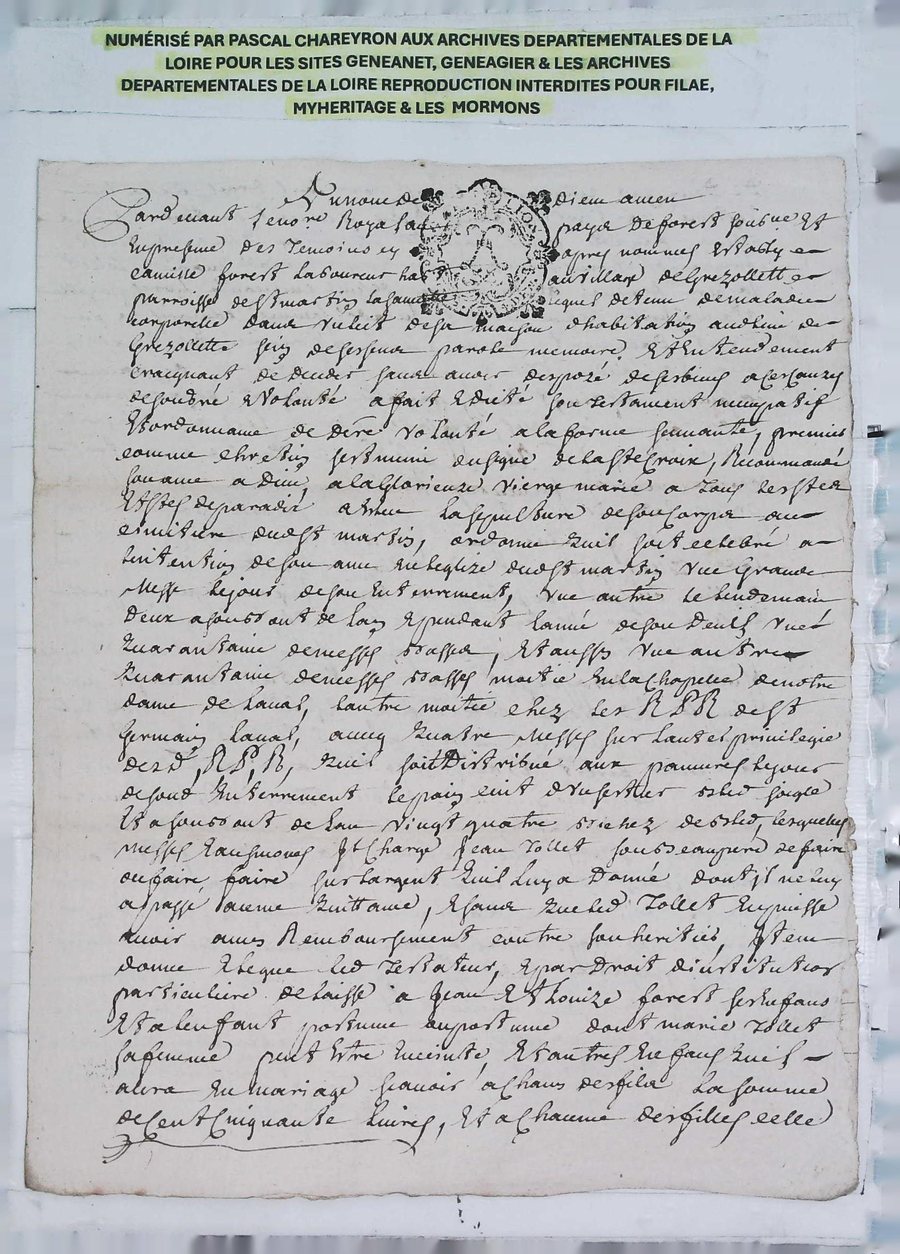 NUMÉRISÉ PAR PASCAL CHAREYRON AUX ARCHIVES DEPARTEMENTALES DE LA
LOIRE POUR LES SITES GENEANET, GENEAGIER & LES ARCHIVES
DEPARTEMENTALES DE LA LOIRE REPRODUCTION INTERDITES POUR FILAE,
MYHERITAGE & LES MORMONS
Au nom de dieu amen
Pardevant le no.re Royal au paya de forest soub.ne Et
En presence des temoins cy apres nommes Estably
Camille forest laboureur au village de Grezollette
parroisse de st martin la sauvete lequel detenu de maladie
corporelle dans un lict de sa maison d'habitation audt lieu de
Grezollette sein de ses sens parole memoire, Et Entendement
Craignant de deceder sans avoir dispozé de ses biens a ces causes
de son gré & volonté a fait & dicté son testament nuncupatif
Et ordonnance de der.e volonté a la forme suivante, premier
comme chretien sest muni du signe de la ste Croix, Recommandé
son ame a Dieu a la Glorieuze vierge marie a tous les sts &
Et stes de paradis a Esleu la sepulture de son corps au
cimitiere dudt st martin, ordonne quil soit celebré a
lintention de son ame En leglize dudt st martin une Grande
Messe le jour de son Enterrement, une autre le lendemain
deux a son bout de lan & pendant lannée de son deuil une
Quarantaine de messes basses, Et aussy une autre
Quarantaine de messes basses moitié En la chapelle de notre
dame de laval, lautre moitié chez les R P R de st
Germain laval, avec quatre Messes sur lautel privilegié
desd. R, P, R, quil soit Distribué aux pauvres le jour
de sond. Enterrement le pain cuit d'un sestier bled seigle
Et a son bout de lan vingt quatre bichez de bled, lesquelles
Messes & aumones Il Charge Jean Tollet son beau pere de faire
ou faire faire sur largent quil luy a Donné dont il ne luy
a passé aucune quittance, & sans que led Tollet En puisse
avoir aucun Remboursement contre son heritier, Item
donne & legue led Testateur, & par Droit dinstitution
particuliere delaisse a Jean Et Louize forest ses Enfans
Et a lenfant postume ou postumes dont marie Tollet
sa femme peut Estre Enceinte Et autres Enfans quil
aura En mariage scavoir a chacun des fils la somme
de Cent Cinquante Livres, Et a Chacune des filles celle